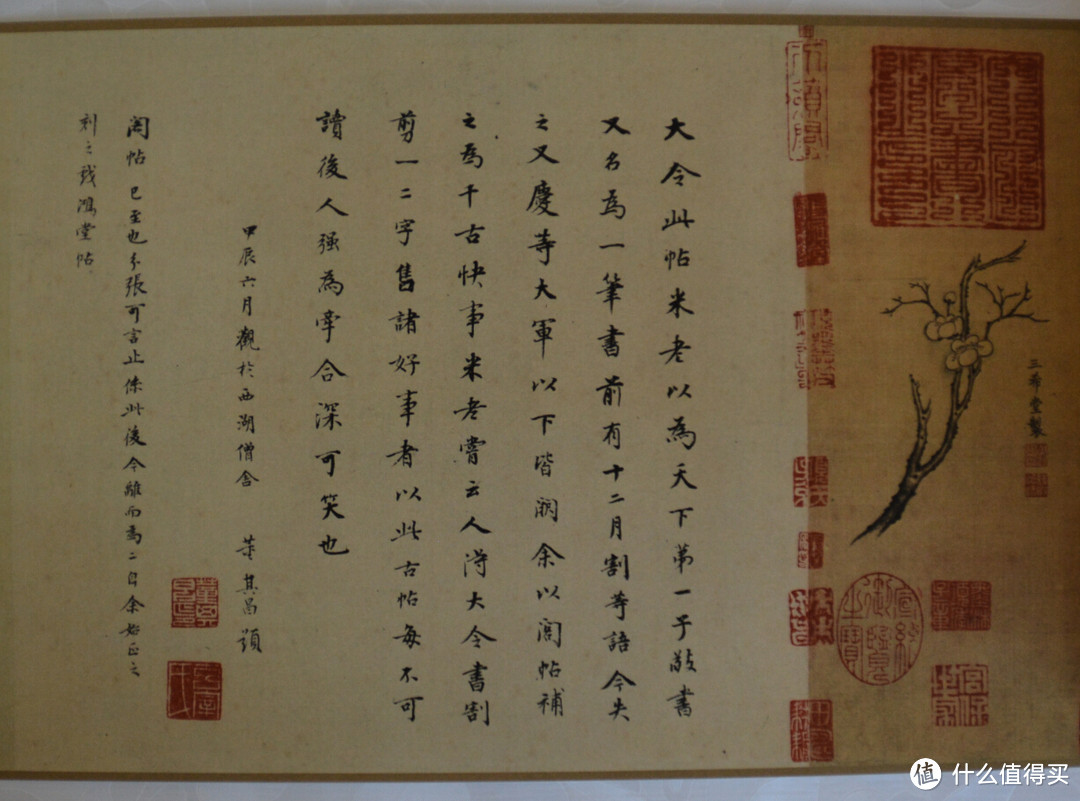 三希堂製
宣統御覽之寶
大令此帖米老以為天下第一子敬書
又名為一筆書前有十二月割等語今失
之又慶等大軍以下皆闕余以閣帖補
之為千古快事米老嘗云人得大令書割
剪一二字售諸好事者以此古帖每不可
讀後人强為牽合深可笑也
甲辰六月觀於西湖僧舍 董其昌題
閣帖已至也分張可言止係此後今離而為二自余始正之
刻之戏鴻堂帖
值 什么值得买